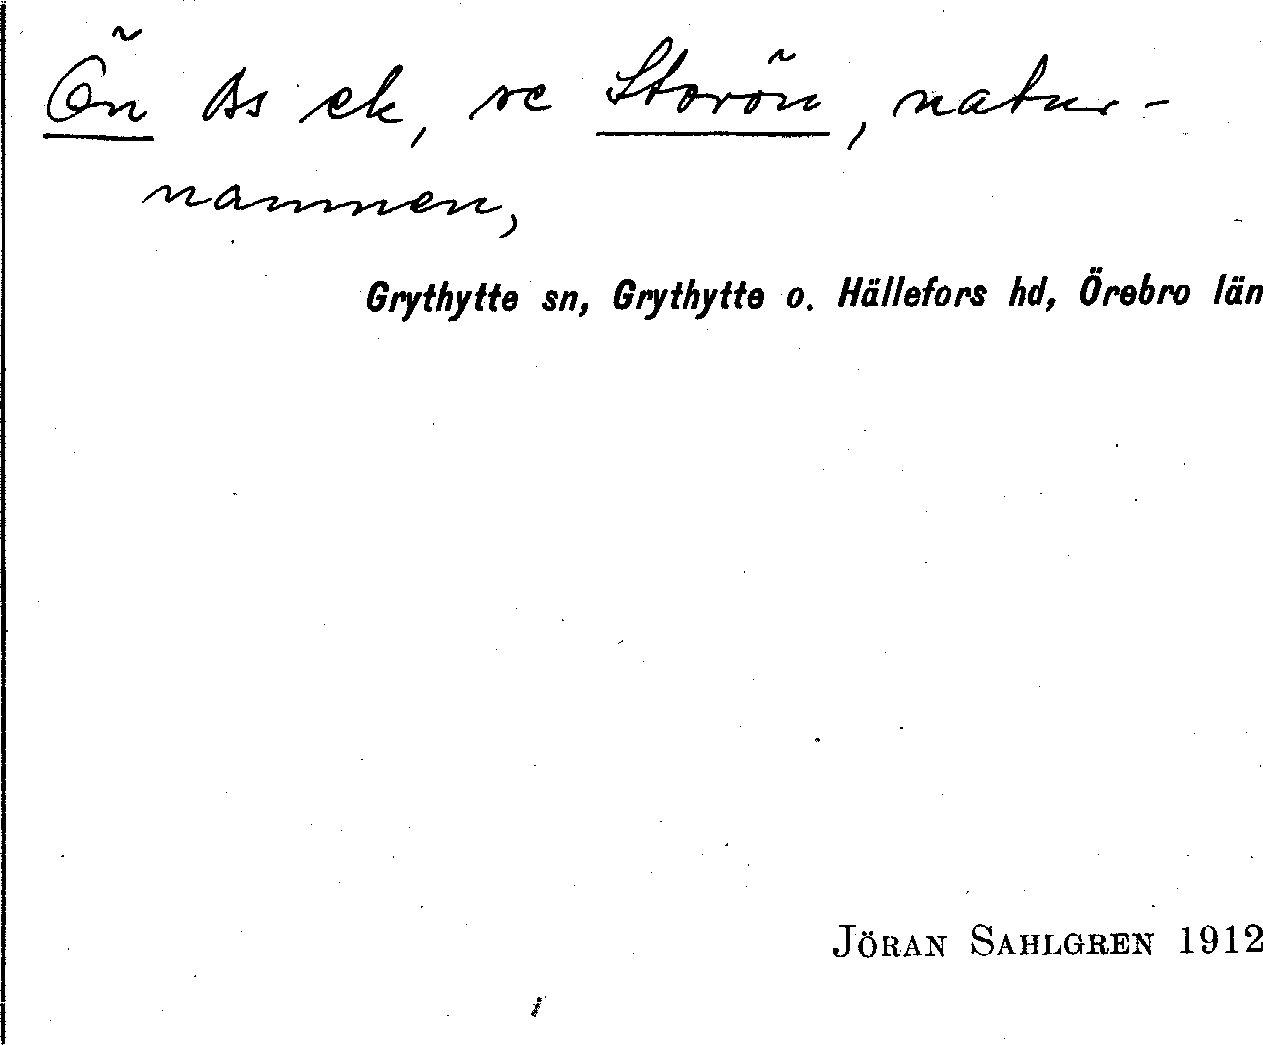 Ön Bs ek, se Storön, natur-
namnen,
Grythytte sn, Grythytte o. Hällefors hd, Örebro län
JÖRAN SAHLGREN 1912